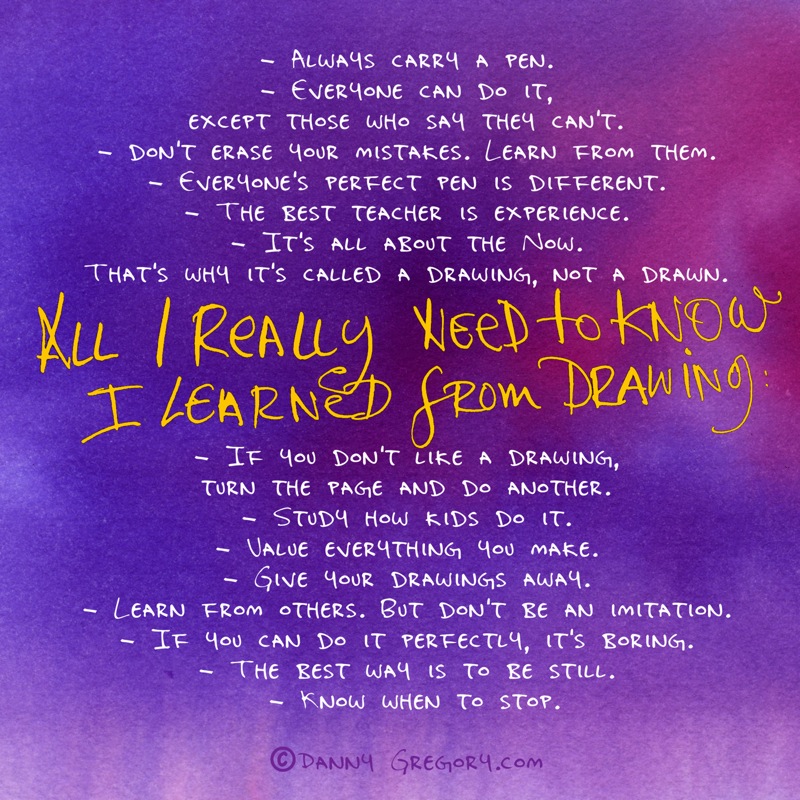 - Always carry a pen.
- Everyone can do it,
except those who say they can't.
- Don't erase your mistakes. Learn from them.
- Everyone's perfect pen is different.
- The best teacher is experience.
- It's all about the Now.
That's why it's called a drawing, not a drawn.
All I really need to know
I learned from drawing:
- If you don't like a drawing,
turn the page and do another.
- Study how kids do it.
- Value everything you make.
- Give your drawings away.
- Learn from others. But don't be an imitation.
- If you can do it perfectly, it's boring.
- The best way is to be still.
- Know when to stop.
©Danny Gregory.com